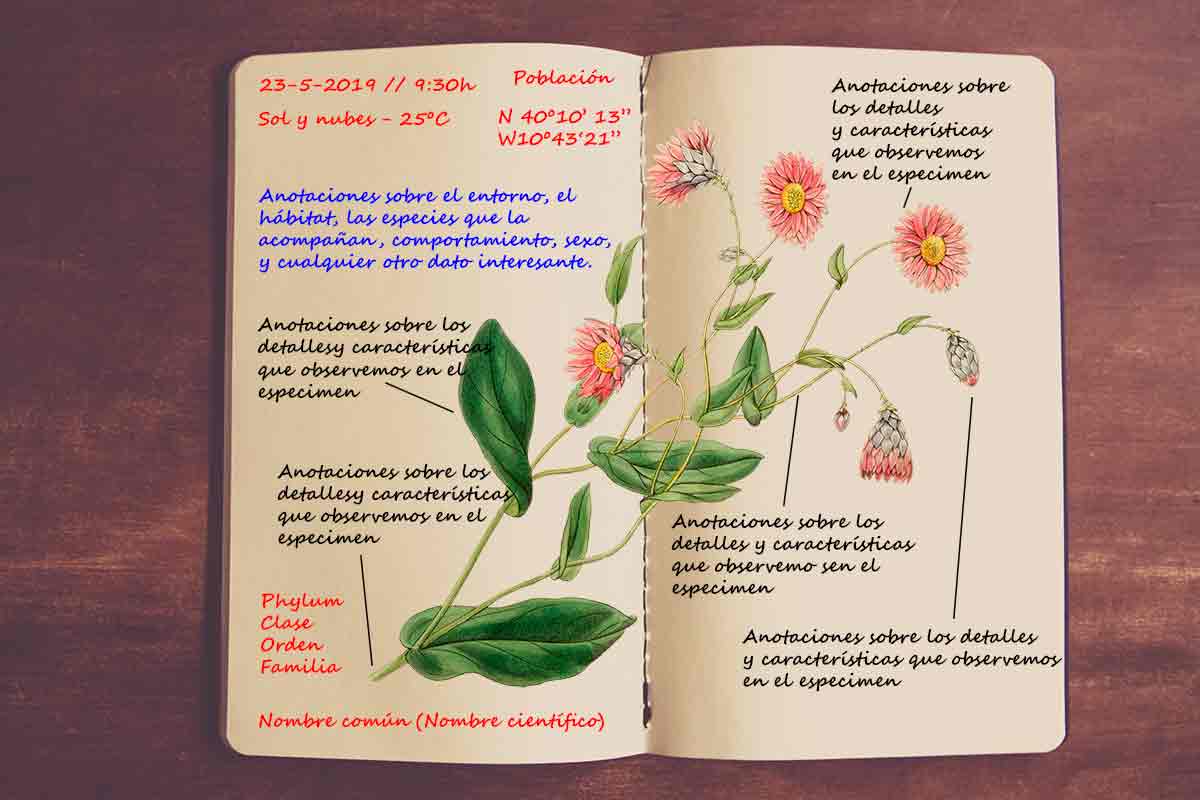 23-5-2019 // 9:30h
Población
Sol y nubes - 25ºC
N 40º10' 13”
W10º43'21”
Anotaciones sobre el entorno, el
hábitat, las especies que la
acompañan, comportamiento, sexo,
y cualquier otro dato interesante.
Anotaciones sobre los
detallesy características
que observemos en el
especimen
Anotaciones sobre los
detallesy características
que observemos en el
especimen
Phylum
Clase
Orden
Familia
Nombre común (Nombre científico)
Anotaciones sobre
los detalles
y características
que observemos
en el especimen
Anotaciones sobre los
detalles y características
que observemo sen el
especimen
Anotaciones sobre los detalles
y características que observemos
en el especimen